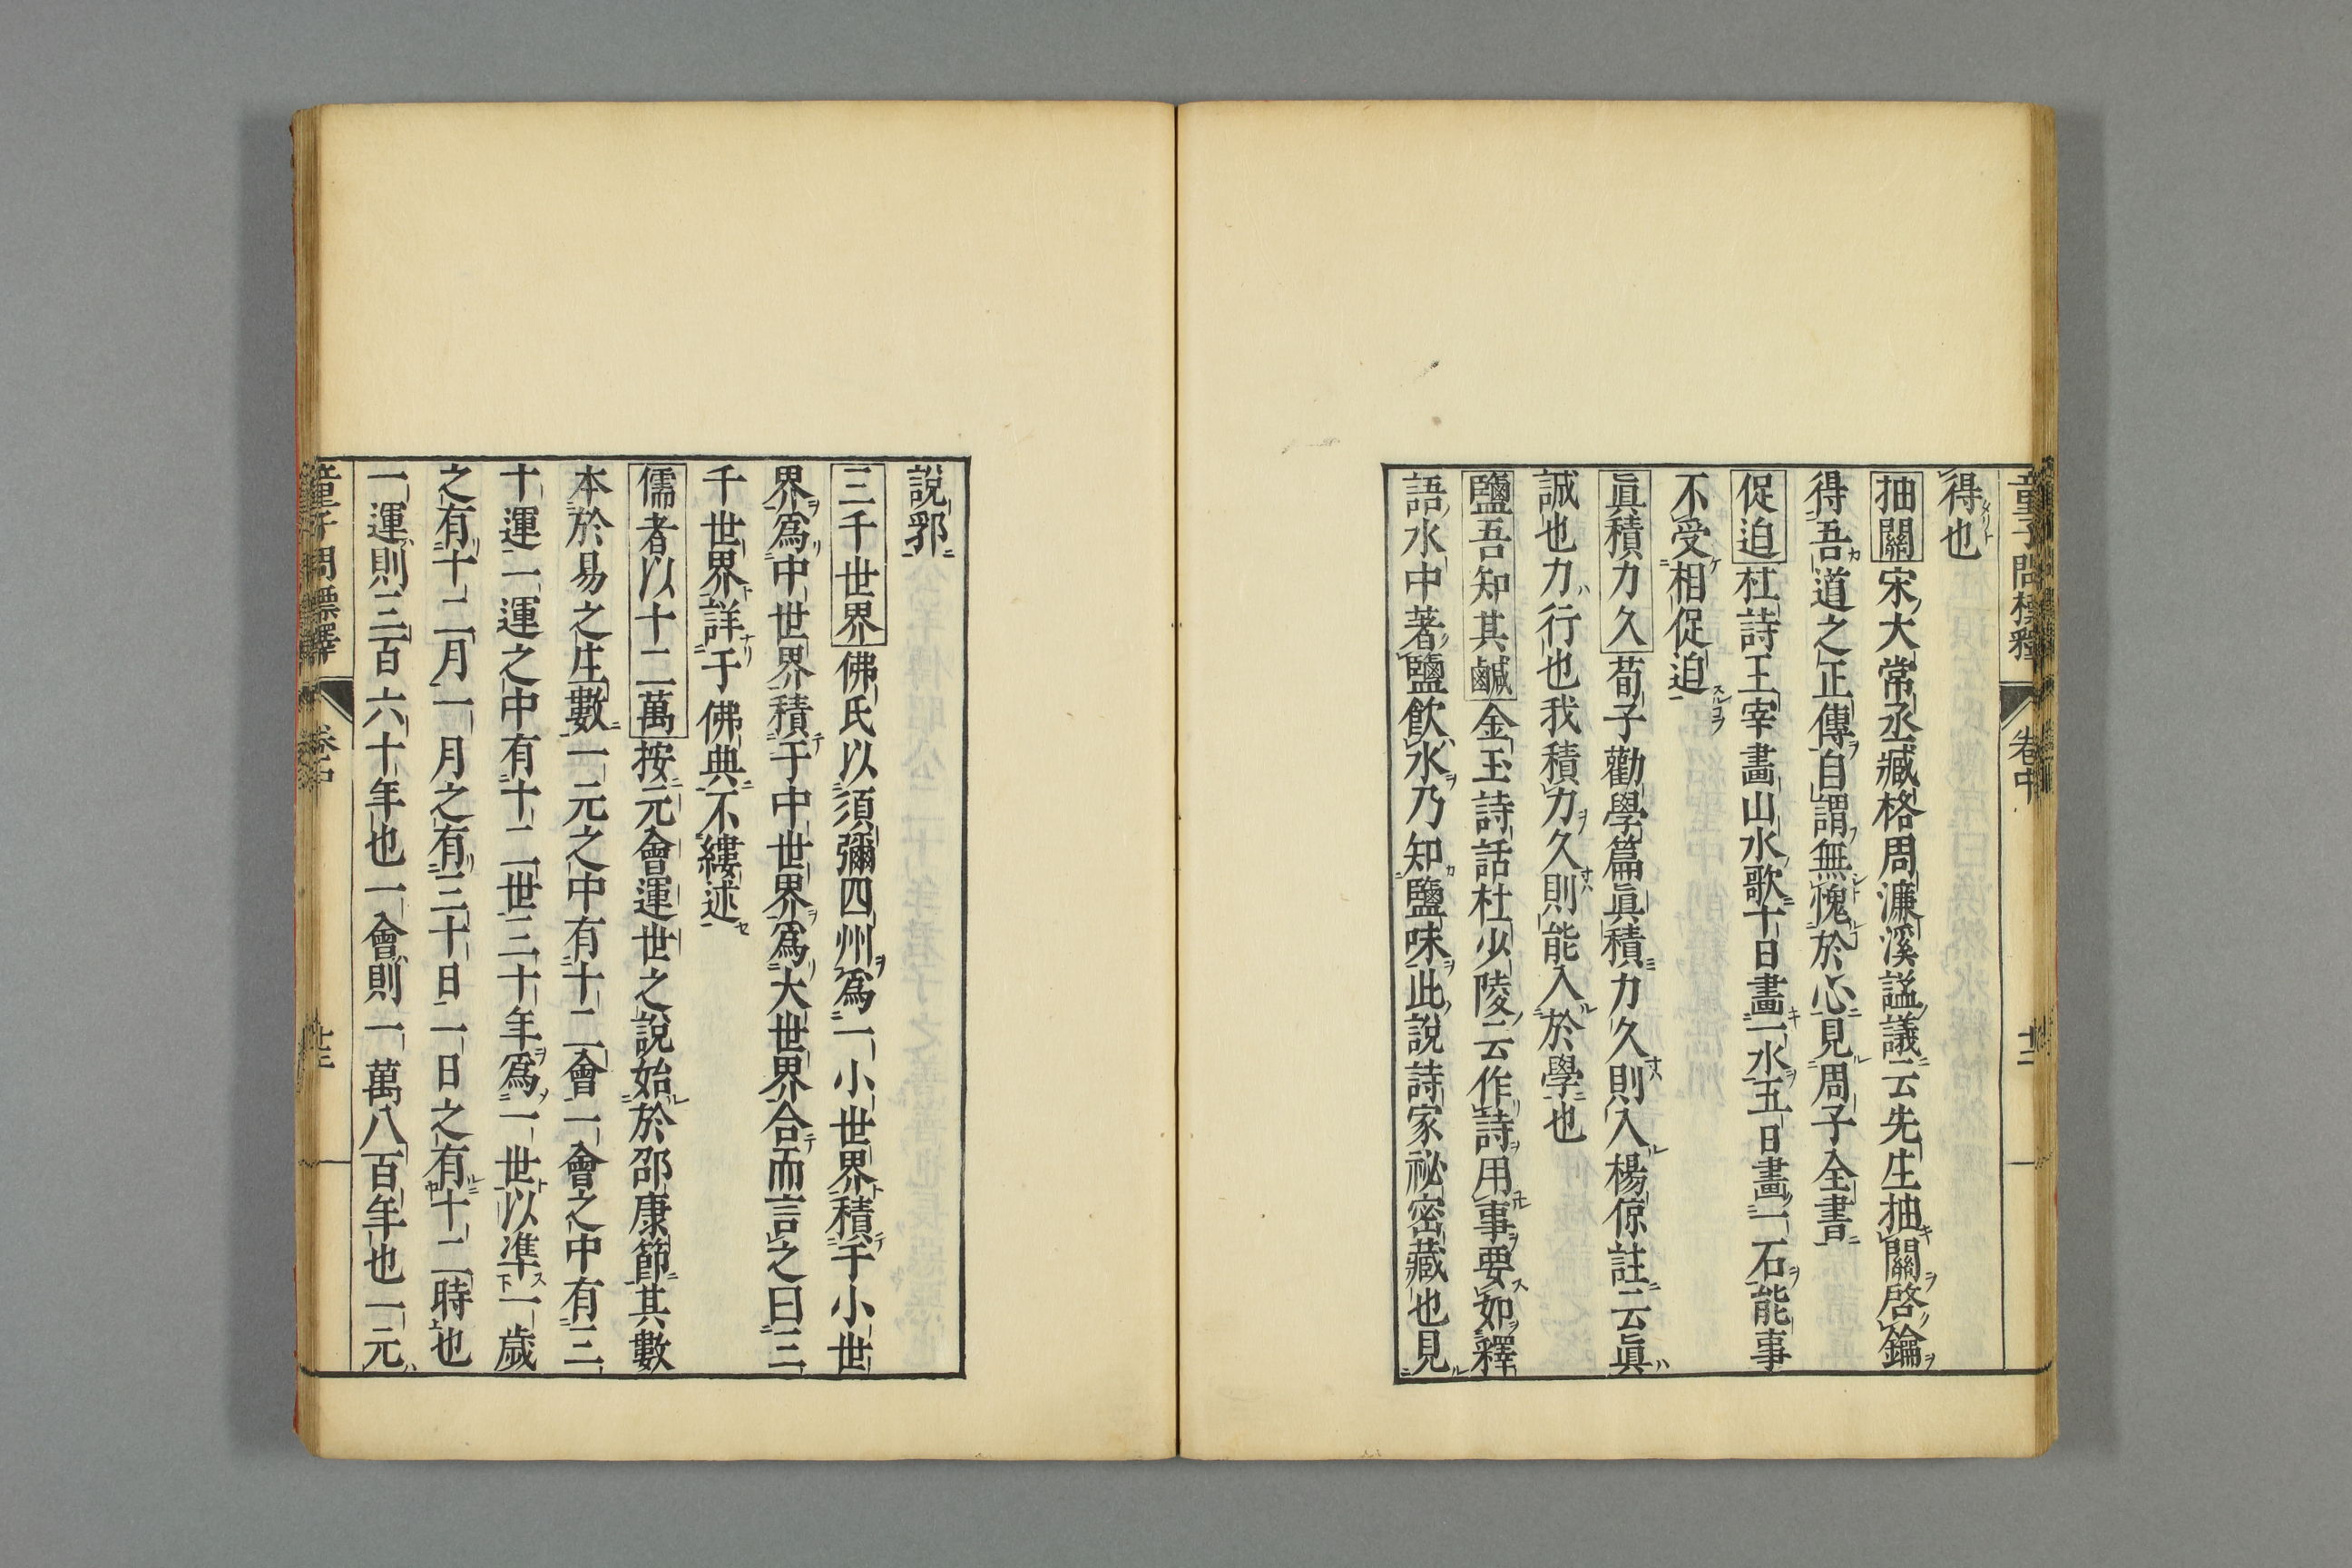 童子問標釋 卷中 十二
得也
抽關宋大常丞臧格周濂溪謚議云先生抽關啓鑰
得吾道之正傳自謂無愧於心見周子全書
促迫杜詩王宰畫山水歌十日畫一水五日畫一石能事
不受相促迫
眞積力久荀子勸學篇眞積力久則入楊倞註云眞
誠也力行也我積力久則能入於學也
鹽吾知其鹹金玉詩話杜少陵云作詩用事要如釋
語水中著鹽飲水乃知鹽味此說詩家祕密藏也見
說郛
三千世界佛氏以須彌四州爲一小世界積于小世
界爲中世界積于中世界爲大世界合而言之曰三
千世界詳于佛典不縷述
儒者以十二萬按元會運世之說始於邵康節其數
本於易之生數一元之中有十二會一會之中有三
十運一運之中有十二世三十年爲一世以準一歲
之有十二月一月之有三十日一日之有十二時也
一運則三百六十年也一會則一萬八百年也一元
童子問標釋 卷中